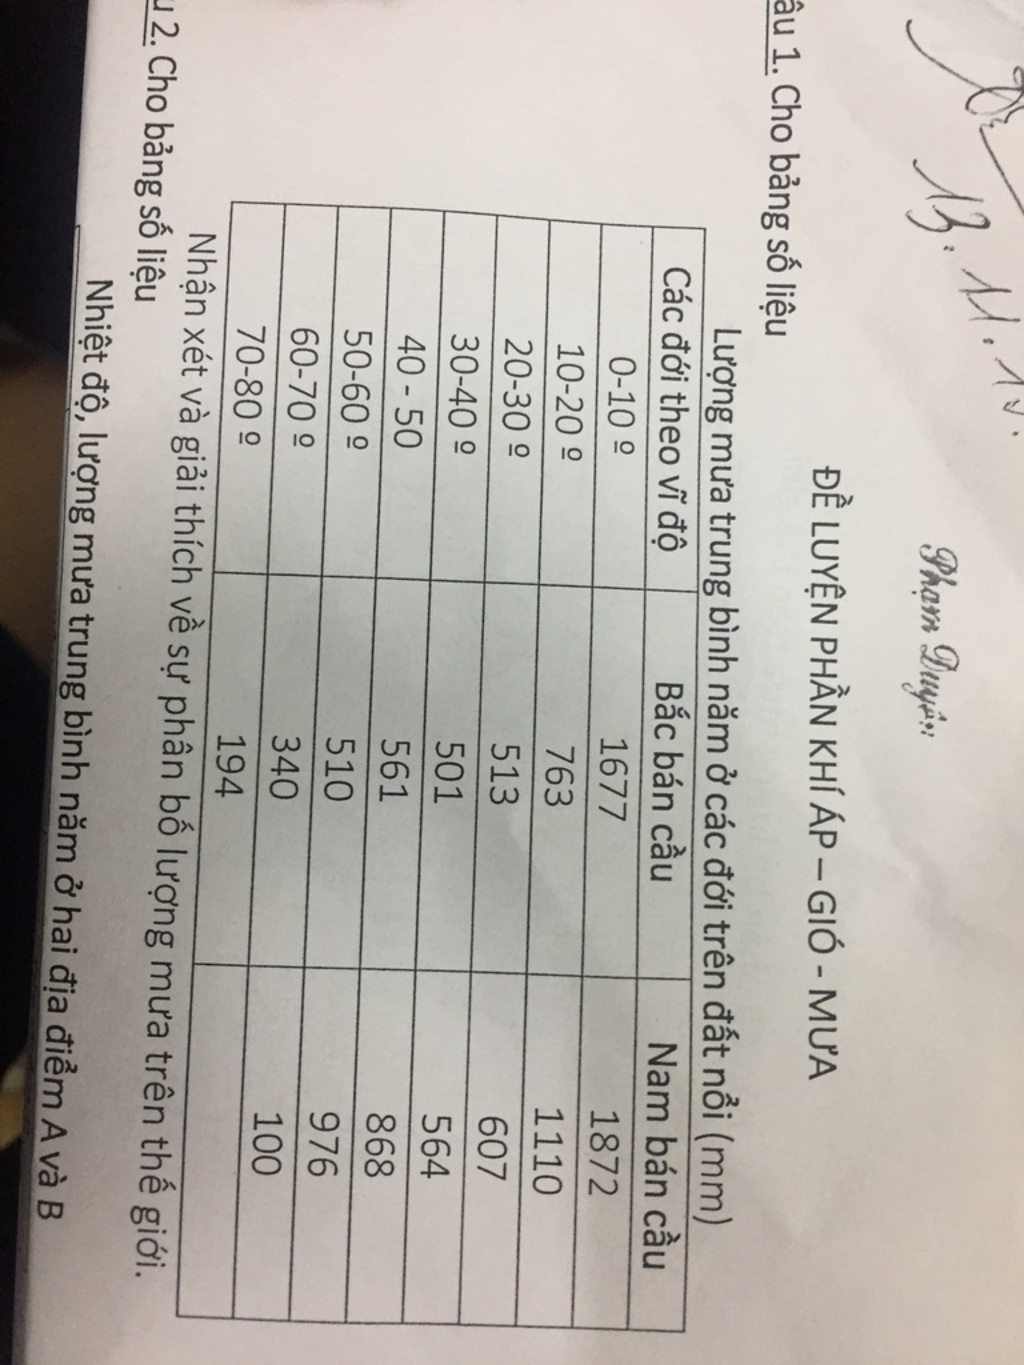 13.11.19.
Phạm Duyên
ĐỀ LUYỆN PHẦN KHÍ ÁP – GIÓ - MƯA
âu 1. Cho bảng số liệu
Lượng mưa trung bình năm ở các đới trên đất nổi (mm)
Các đới theo vĩ độ Bắc bán cầu Nam bán cầu
0-10 º 1677 1872
10-20 º 763 1110
20-30 º 513 607
30-40 º 501 564
40 - 50 561 868
50-60 º 510 976
60-70 º 340 100
70-80 º 194
Nhận xét và giải thích về sự phân bố lượng mưa trên thế giới.
u 2. Cho bảng số liệu
Nhiệt độ, lượng mưa trung bình năm ở hai địa điểm A và B